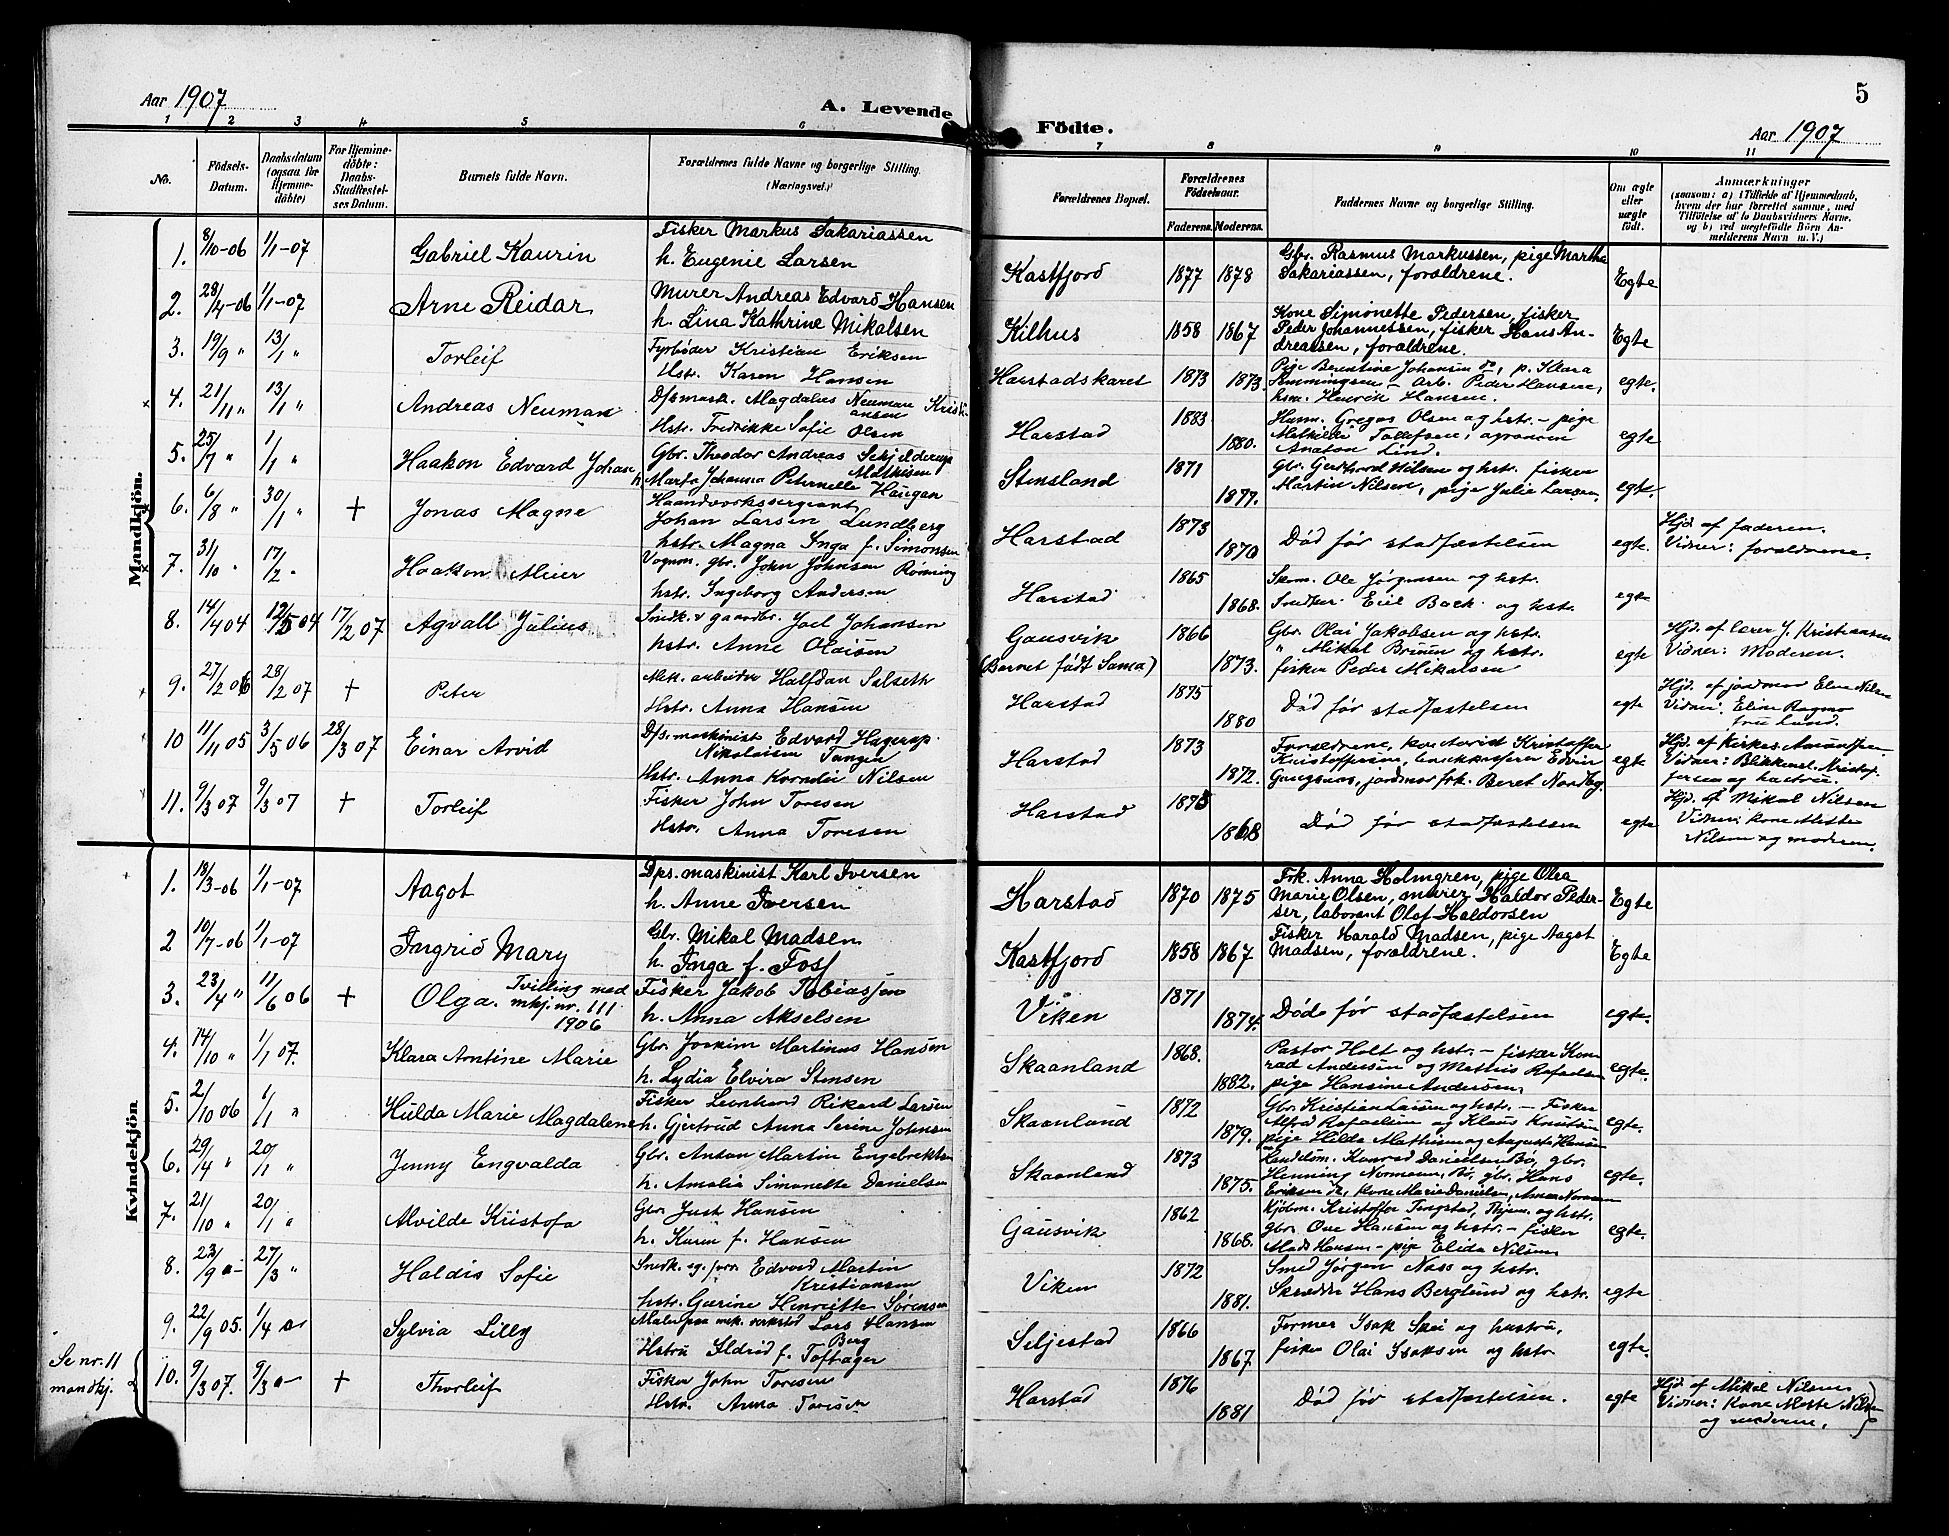 Aar 1907
A. Levende
Födte.
5
Aar 1907
1 2 3 4 5 6 7 8 9 10 11
No.
Födsels-
Datum.
Daabsdatum
(ogsaa for
Hjemme-
döbte)
For Hjemme-
döbte:
Daabs-
Stadfæstel-
ses Datum.
Barnets fulde Navn.
Forældrenes fulde Navne og borgerlige Stilling.
(Næringsvei.)
Forældrenes Bopæl.
Forældrenes
Födselsaar.
Faderens Moderens.
Faddernes Navne og borgerlige Stilling.
Om ægte
eller
uægte
födt.
Anmærkninger
(saasom: a) i Tilfælde af Hjemmedaab,
hvem der har forrettet samme, med
Tilföielse af to Daabsvidners Navne.
og b) ved uægtefödte Börn An-
melderens Navn m. V.)
Mandkjön.
1. 8/10-06 1/1-07 Gabriel Kaurin
Fisker Markus Sakariassen
h. Eugenie Larsen
Kastfjord 1877 1878
Gbr. Rasmus Markussen, pige Martha
Sakariassen, forældrene.
Egte
2. 28/4-06 1/1-07 Arne Reidar
Murer Andreas Edvard Hansen
h. Lina Kathrine Mikalsen
Kilhus 1858 1867
Kone Simonette Pedersen, fisker
Peder Johannessen, fisker Hans An-
dreassen, forældrene.
Egte
3. 19/9 " 13/1 " Torleif
Fyrbøder Kristian Eriksen
Hstr. Karen Hansen
Harstadskaret 1873 1873.
Pige Berentine Johansen do, p. Klara
Arb. Peder Hansen,
Henrik Hansen.
egte.
4. 21/11 " 13/1 " Andreas Neuman
Dpsmask. Magdalus Neuman Kristi-
ansen
Hstr. Fredrikke Sofie Olsen
Harstad 1883 1880.
Gregus Olsen og hstr. - pige
Mathilde Tollefsen, agronom
Anaton Lind.
egte
5. 25/7 " 1/1 " Haakon Edvard Johan
Gbr. Theodor Andreas Schjelderup
Mathisen
h. Marta Johanna Peternelle Haugan
Stensland 1871 1877.
Gbr. Gerdhard Nilsen og hstr. fisker
Martin Nilsen, pige Julie Larsen.
egte.
6. 6/8 " 30/1 " + Jonas Magne
Haandverkssergeant
Johan Larsen Lundberg
hstr. Magna Inga f. Simonsen
Harstad 1873 1870
Død før stadfæstelsen
egte.
Hjd. af faderen.
Vidner: forældrene.
7. 31/10 " 17/2 " Haakon Meier
Vognm. gbr. John Johnsen Rønning
hstr. Ingeborg Andersen
Harstad 1865 1868.
Ole Jørgensen og hstr.
Snedker Eiel Bach og hstr.
egte
8. 14/4 04 12/5 04 17/2 07 Agvall Julius
Snedk. & gaardbr. Joel Johansen
hstr. Anne Olaisen
Gausvik
(Barnet født Sama)
1866 1873.
Gbr. Olai Jakobsen og hstr.
" Mikal Bruun og hstr.
fisker Peder Mikalsen
egte
Hjd. af lærer J. Kristiansen
Vidner: Moderen.
9. 27/2 06 28/2 07 + Peter
Mek. arbeider Halfdan Salseth
Hstr. Anna Hansen
Harstad 1875 1880
Død før stadfæstelsen
egte
Hjd. af jordmor Elen Nilsen
Vidner: Eline Ragmo
fru Lund.
10 11/11 05 3/5 06 28/3 07 Einar Arvid
Dps. maskinist Edvard Hagerup
Nikolaisen Tangen
Hstr. Anna Nilsen
Harstad 1873 1872.
Forældrene, Kristoffer
Kristoffersen, Edvin
jordmor frk. Beret Nordbeg.
egte
Vidner: Blikkensl. Kristof-
fersen og hustru.
11. 9/3 07 9/3 07 + Torleif
Fisker John Toresen
Hstr. Anna Toresen
Harstad 1868
Død før stadfæstelsen
egte
Hjd. af Mikal Nilsen
Vidner: kone Mette
Nilsen og moderen.
Kvindekjön
1. 18/3-06 1/1-07 Aagot
Dps. maskinist Karl Iversen
h. Anne Iversen
Harstad 1870 1875
Frk. Anna Holmgren, pige Olea
Marie Olsen, murer Haldor Peder-
ser, laborant Olaf Haldorsen
Egte
2 10/7-06 1/1-07 Ingrid Mary
Gbr. Mikal Madsen
h. Inga f. Foss
Kastfjord 1858 1867
Fisker Harald Madsen, pige Aagot
Madsen, forældrene.
Egte
3. 23/4 " 11/6 06 + Olga. Tvilling med
mkj. nr. 111
1906
Fisker Jakob Tobiassen
h. Anna Akselsen
Viken 1871 1874.
Døde før stadfæstelsen
egte.
4. 14/10 " 1/1 07. Klara Arntine Marie
Gbr. Joakim Martinus Hansen
h. Lydia Elvira Stensen
Skaanland 1868. 1882.
Pastor Holt og hstr. - fisker Kon-
rad Andersen og Mathis Rafaelsen
pige Hansine Andersen.
egte.
5. 2/10 06 1/1 " Hulda Marie Magdalene
Fisker Leonhard Rikard Larsen
h. Gjertrud Anna Serine Johnsen
Skaanland 1872 1879.
Gbr. Kristian Larsen og hstr. - Fisker
Alfred Rafaelsen og Klaus Knutsen
pige Hilda Mathisen og Augusta Hansen
egte.
6. 29/4 " 20/1 " Jenny Engvalda
Gbr. Anton Martin Engebrektsen
h. Amalia Simonette Danielsen
Skaanland 1873 1875.
Handelsm. Konrad Danielsen Bø, gbr.
Henning Normann, Bø, gbr. Hans
Eriksen do, kone Marie Danielsen, Anna Normann
egte.
7. 21/10 " 20/1 " Alvilde Kristofa
Gbr Just Hansen
h. Karen f. Hansen
Gausvik 1862 1868.
Kjøbm. Kristoffer Tingstad, og hstr.
gbr. Ove Hansen og hstr. - fisker
Mads Hansen - pige Elida Nilsen
egte.
8. 23/9 27/3 " Haldis Sofie
Snedk. og forr. Edvard Martin
Kristiansen
hstr. Gurine Henriette Sørensen
Viken 1872 1881.
Smed Jørgen Nass og hstr.
Skrædder Hans Berglund og hstr.
egte
9. 22/9 05. 1/4 Sylvia Lilly
Maler paa mek. verksted Lars Hansen
Berg
Hstru Aldrid f. Toftager
Seljestad 1866 1867.
Former Isak Skei og hustru,
fisker Olai Isaksen og hstr
egte.
Se nr. 11
mandkj.
10. 9/3 07. 9/3 + Thorleif
Fisker John Toresen
Hstr. Anna Toresen
Harstad 1876 1881
Død før stadfæstelsen.
egte
Hjd. af Mikal Nilsen
Vidner: Kone Mette Nilsen
og moderen.